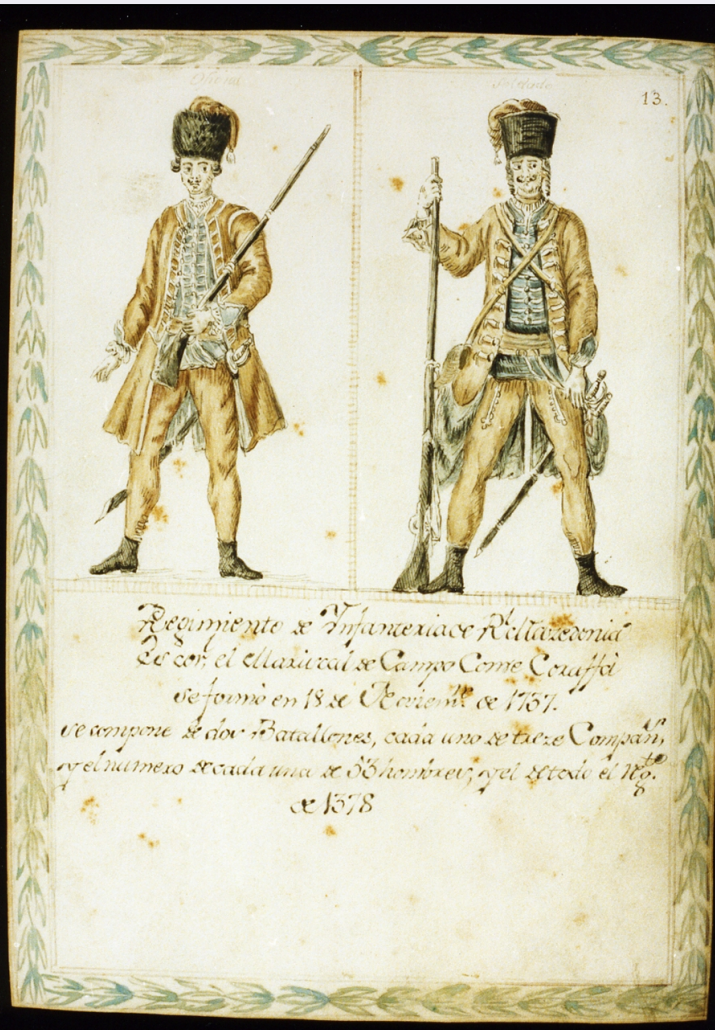 Oficial
Soldado
13.
Regimiento de Infanteria de Rl. Mazedonia
Es Cor. el Mariscal de Campo Come Coraffa
se formó en 18 de Noviemre. de 1737.
se compone de dos Batallones, cada uno de treze Compañs.,
y el numero de cada una de 53 hombres, y el del todo el Rgto.
de 1378